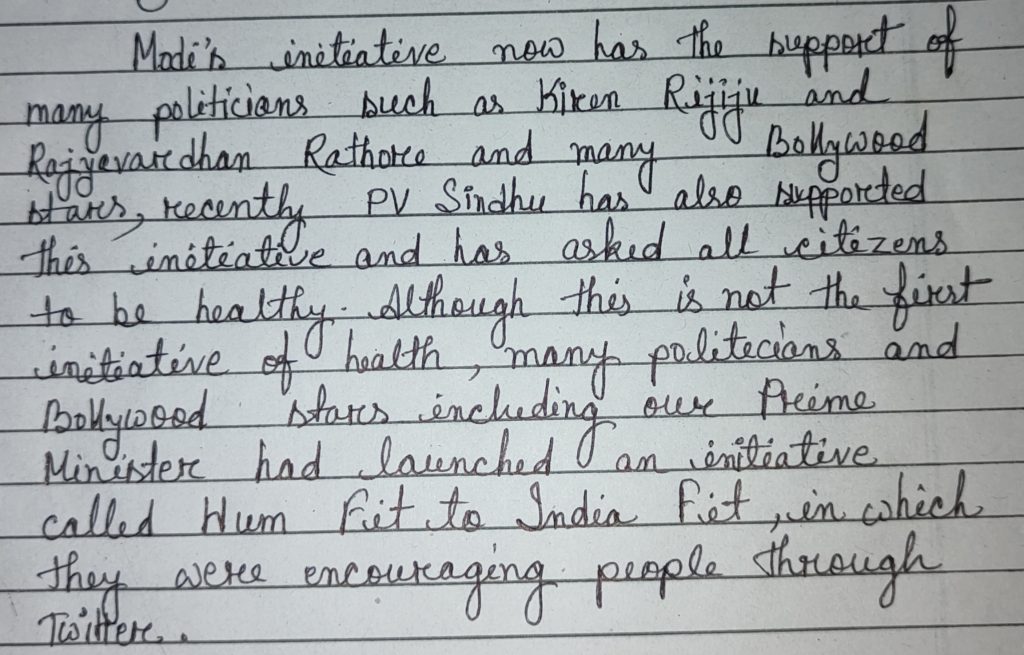 Modi's initiative now has the support of
many politicians such as Kiren Rijiju and
Rajyavardhan Rathore and many Bollywood
stars, recently PV Sindhu has also supported
this initiative and has asked all citizens
to be healthy. Although this is not the first
initiative of health, many politicians and
Bollywood stars including our Prime
Minister had launched an initiative
called Hum Fit to India Fit, in which
they were encouraging people through
Twitter.